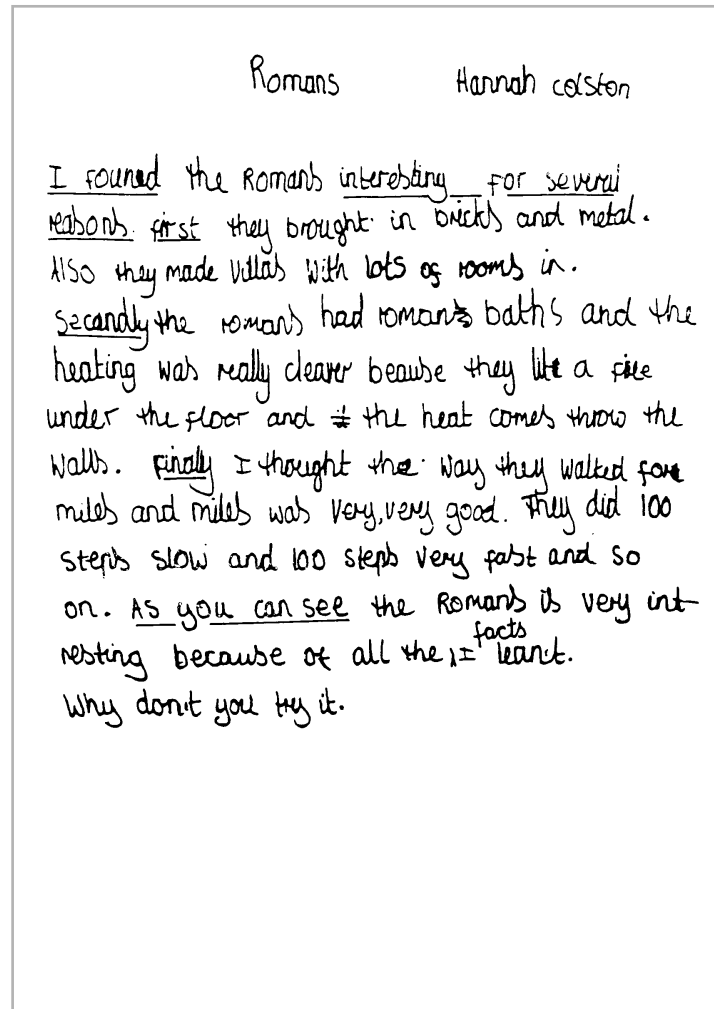 Romans Hannah colston
I founed the Romans interesting for several
reasons. first they brought in bricks and metal.
Also they made villas with lots of rooms in.
Secandly the romans had romans baths and the
heating was really claver beause they lit a fire
under the floor and the heat comes throw the
walls. Finaly I thought the way they walked fore
miles and miles was very, very good. They did 100
steps slow and 100 steps very fast and so
on. As you can see the Romans is very int-
resting because of all the facts I leant.
Why don't you try it.